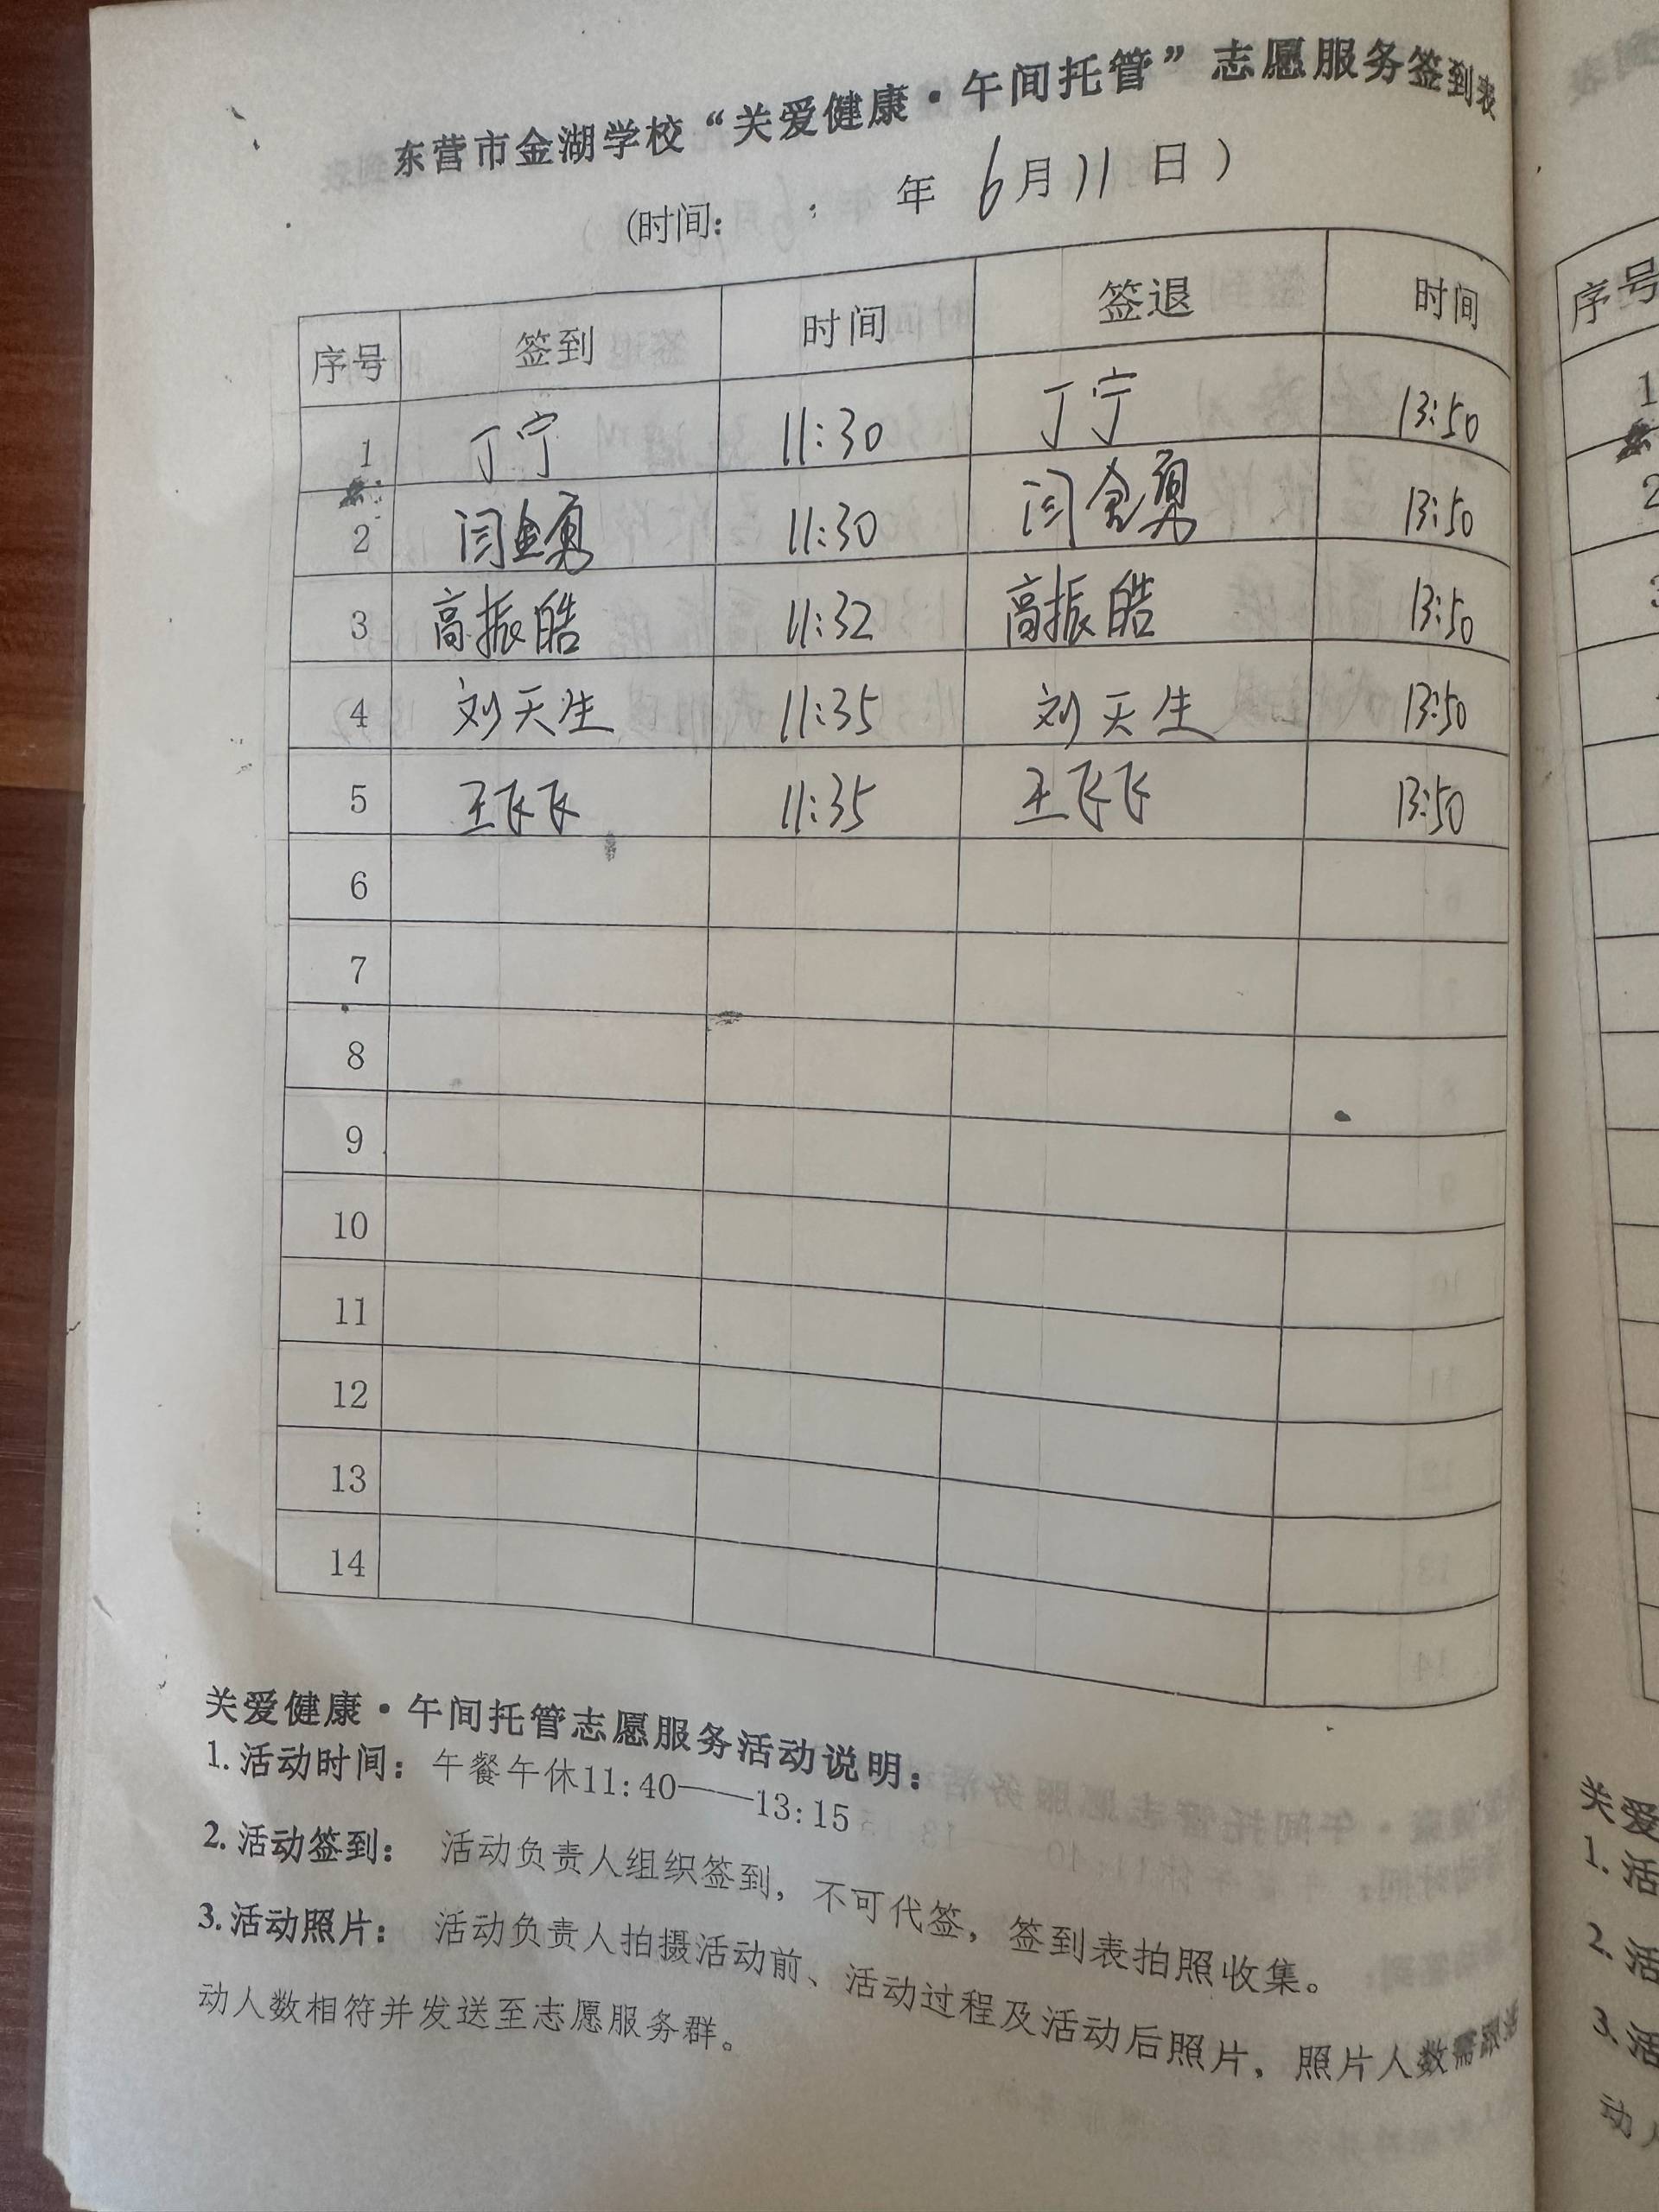 东营市金湖学校“关爱健康·午间托管”志愿服务签到表
(时间: 年 6月11日)
序号 签到 时间 签退 时间
1 丁宁 11:30 丁宁 13:50
2 闫金勇 11:30 闫金勇 13:50
3 高振皓 11:32 高振皓 13:50
4 刘天生 11:35 刘天生 13:50
5 王飞飞 11:35 王飞飞 13:50
6
7
8
9
10
11
12
13
14
关爱健康·午间托管志愿服务活动说明:
1.活动时间: 午餐午休11:40——13:15
2.活动签到: 活动负责人组织签到,不可代签,签到表拍照收集。
3.活动照片: 活动负责人拍摄活动前、活动过程及活动后照片,照片人数需跟
动人数相符并发送至志愿服务群。
序号
1
2
关爱
1.活
2.活
3.活
动